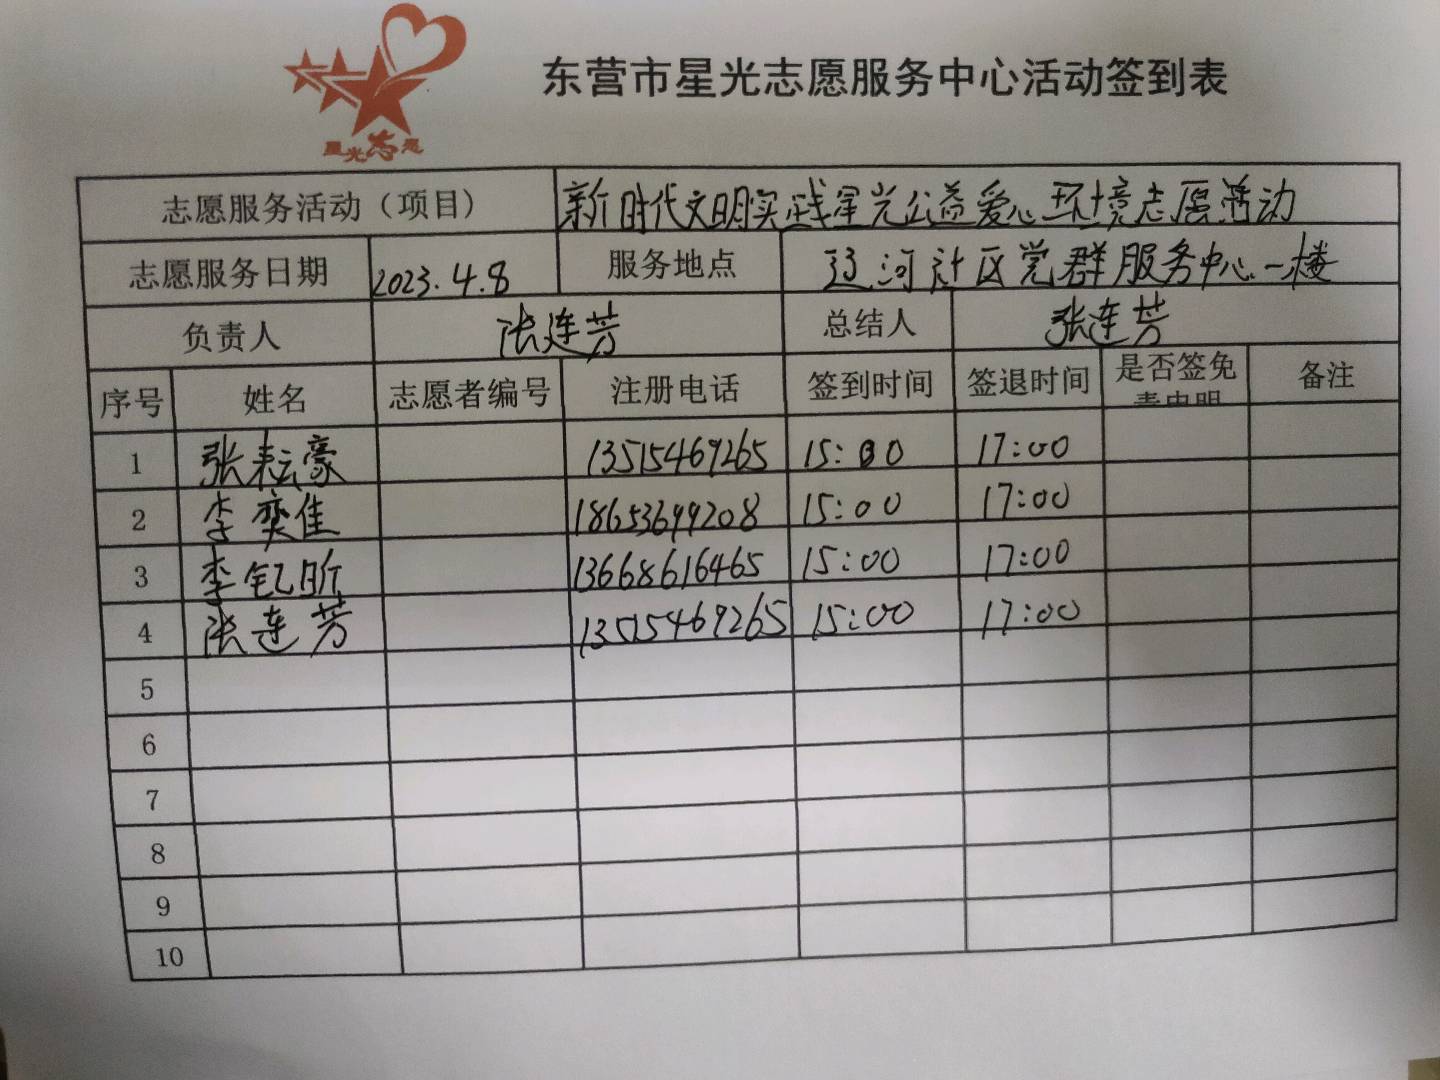 星光志愿
东营市星光志愿服务中心活动签到表
志愿服务活动（项目） 新时代文明实践星光公益爱心环境志愿活动
志愿服务日期 2023.4.8 服务地点 辽河社区党群服务中心一楼
负责人 张连芳 总结人 张连芳
序号 姓名 志愿者编号 注册电话 签到时间 签退时间 是否签免责申明 备注
1 张耘豪 13515469265 15:00 17:00
2 李奕佳 18653699208 15:00 17:00
3 李钇昕 13668616465 15:00 17:00
4 张连芳 13515469265 15:00 17:00
5
6
7
8
9
10